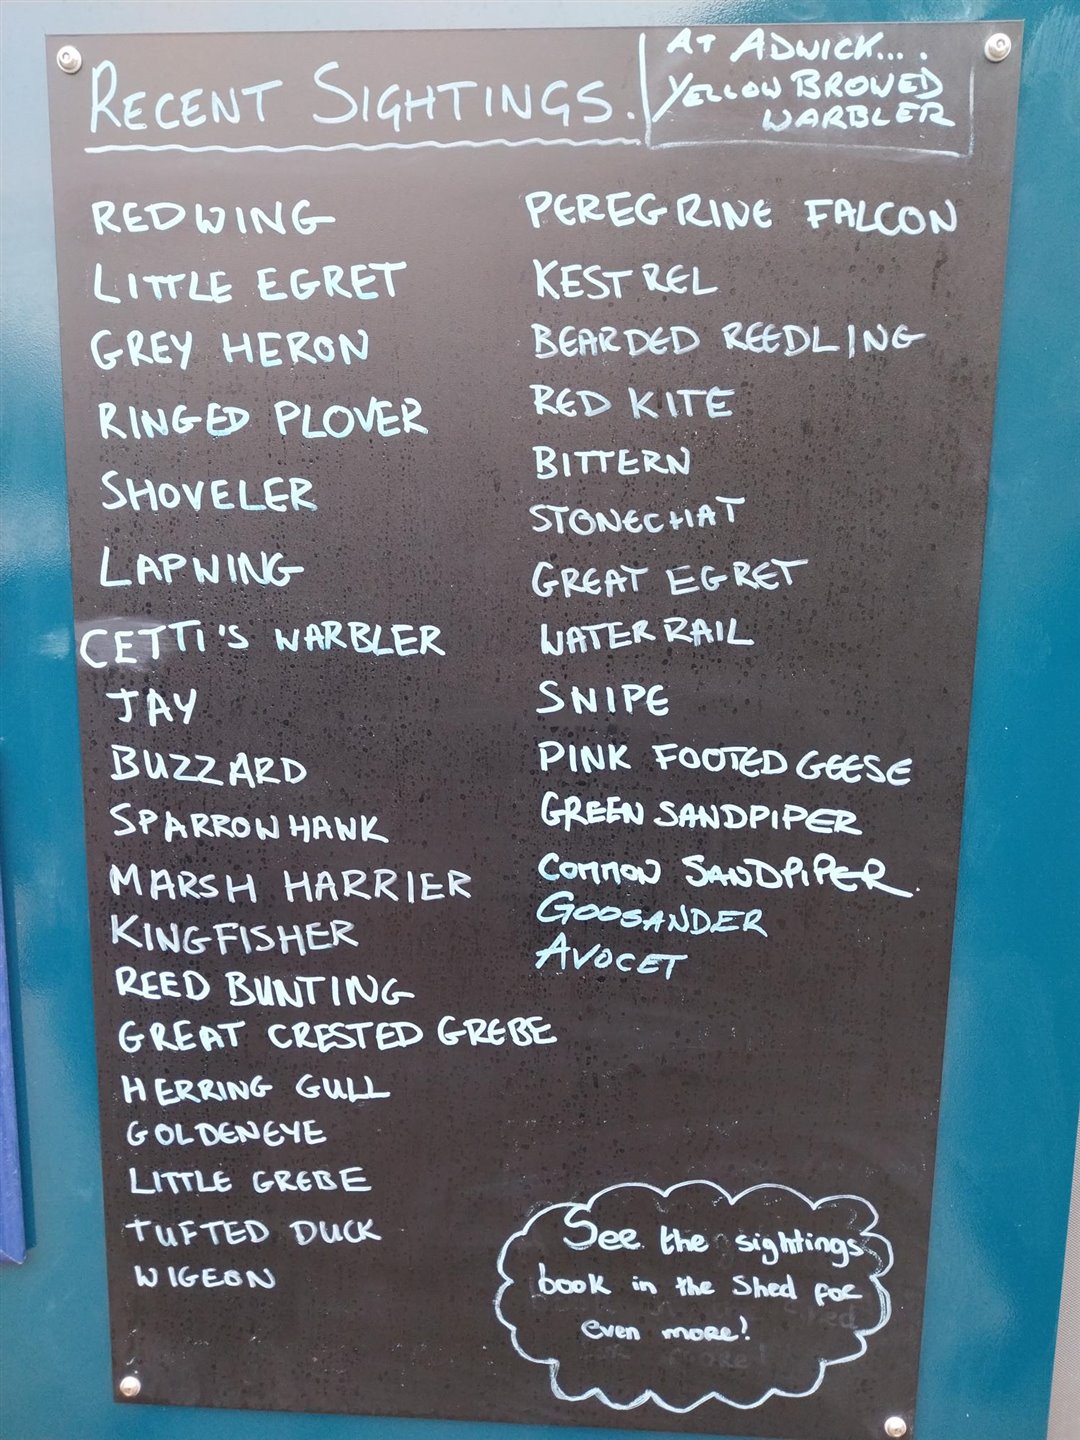 RECENT SIGHTINGS.
AT ADWICK....
YELLOW BROWED
WARBLER
REDWING
LITTLE EGRET
GREY HERON
RINGED PLOVER
SHOVELER
LAPWING
CETTI'S WARBLER
JAY
BUZZARD
SPARROWHAWK
MARSH HARRIER
KINGFISHER
REED BUNTING
GREAT CRESTED GREBE
HERRING GULL
GOLDENEYE
LITTLE GREBE
TUFTED DUCK
WIGEON
PEREGRINE FALCON
KESTREL
BEARDED REEDLING
RED KITE
BITTERN
STONECHAT
GREAT EGRET
WATER RAIL
SNIPE
PINK FOOTED GEESE
GREEN SANDPIPER
COMMON SANDPIPER.
GOOSANDER
AVOCET
See the sightings
book in the Shed for
even more!